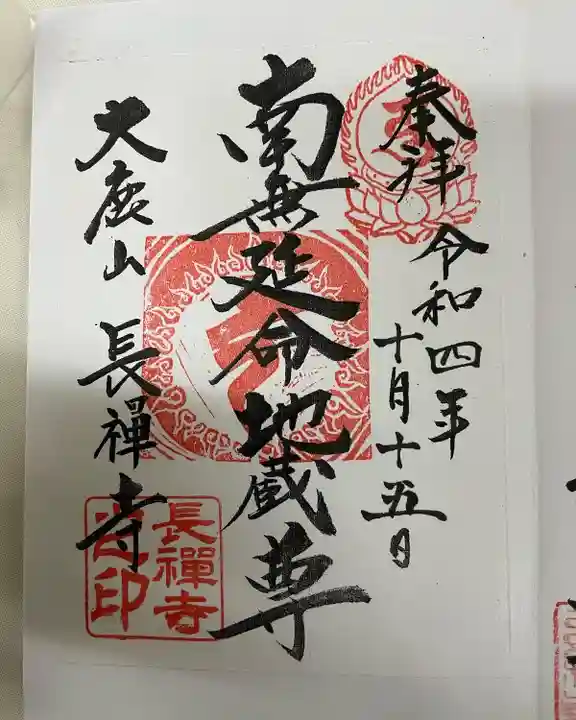 奉拝
令和四年
十月十五日
南無延命地蔵尊
大鹿山
長禪寺
長禪寺
印